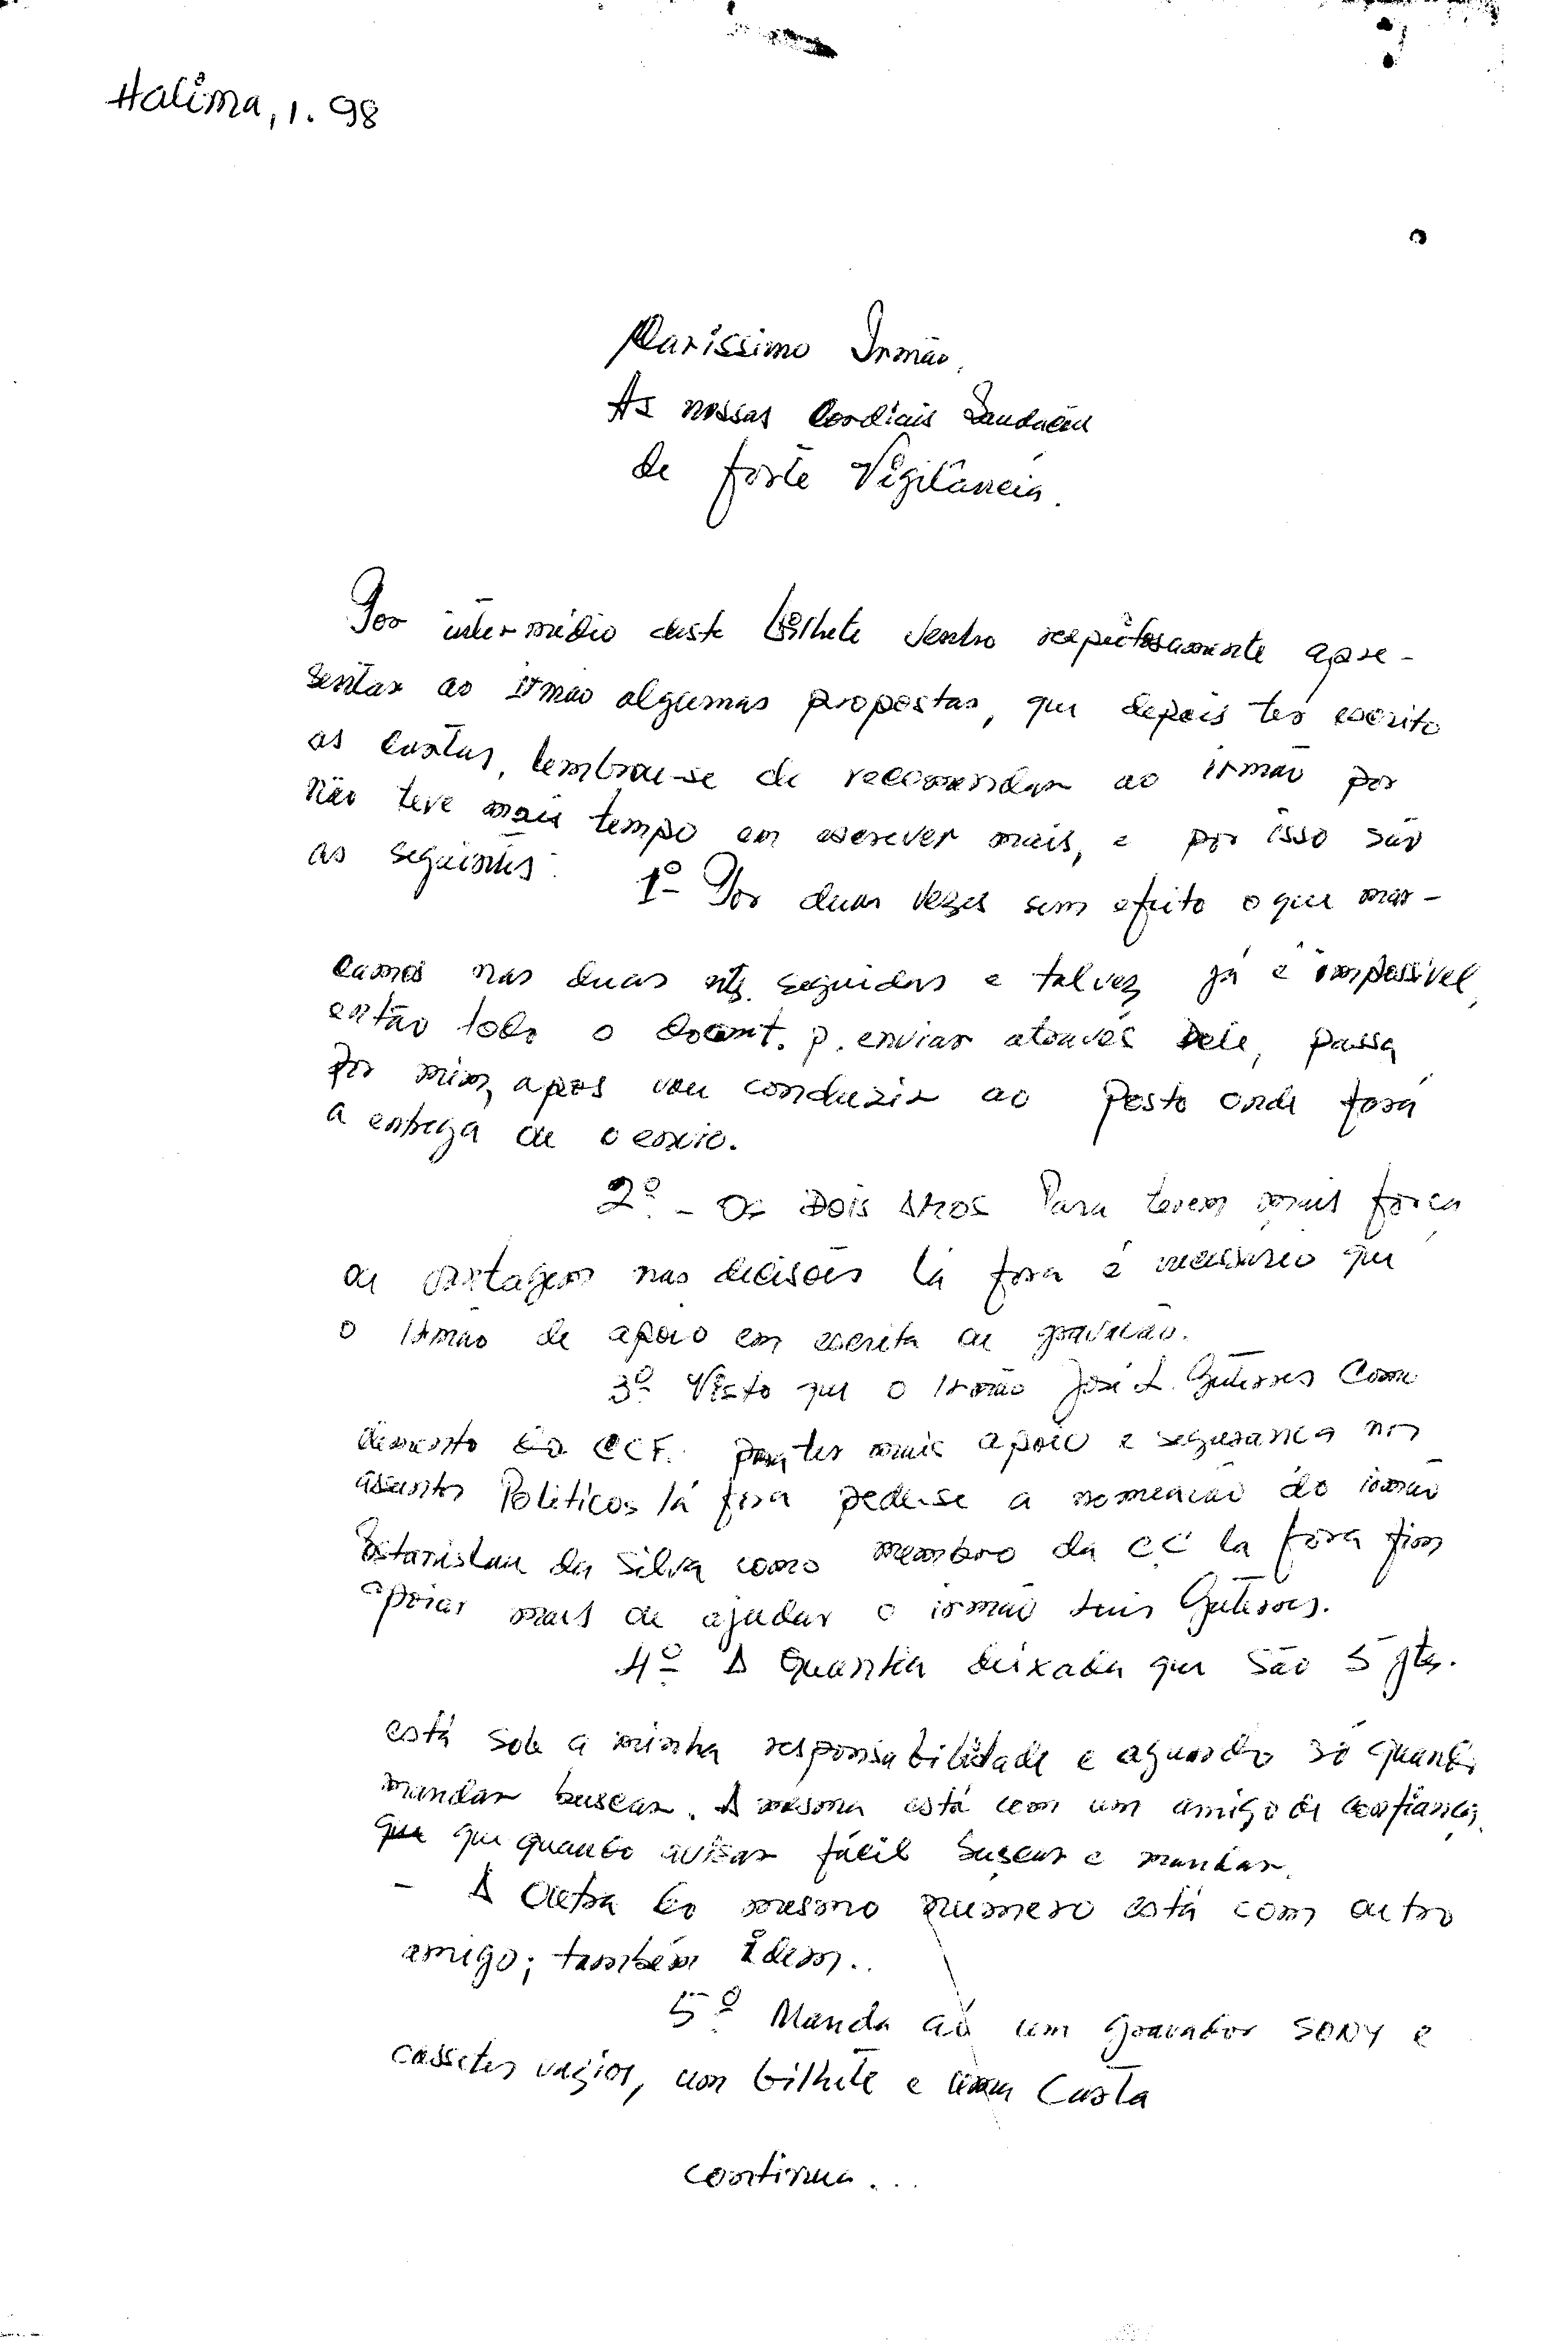 Halima, 1. 98
Caríssimo Irmão,
As nossas Cordiais Saudações
de forte Vigilância.
Por intermédio deste bilhete venho respeitosamente apre-
sentar ao irmão algumas propostas, que depois ter escrito
as cartas, lembrou-se de recomendar ao irmão por
não teve mais tempo em escrever mais, e por isso são
as seguintes:
1º- Por duas vezes sem efeito o que mar-
camos nas duas seguidas e talvez já é impossível,
então todo o p. enviar através Dele, passa
por mim, após vou conduzir ao Posto onde fará
a entrega ou o envio.
2º - Os Dois Para terem mais força
ou nas decisões lá fora é necessário que
o Irmão de apoio em escrita ou gravação.
3º- Visto que o Irmão José L. Guterres Como
elemento do CCF. para ter mais apoio e segurança nos
assuntos Políticos lá fora pede-se a nomeação do irmão
Estanislau da Silva como membro da CC la fora fim
apoiar mais ou ajudar o irmão Luis Guterres.
4º- A Quantia deixada que São 5 jts.
está sob a minha responsabilidade e aguardo só quando
mandar buscar. A mesma está com um amigo de confiança,
que que quando avisar fácil buscar e mandar.
- A Outra do mesmo número está com outro
amigo; também idem..
5º Manda aí um gravador SONY e
cassetes vazios, um bilhete e uma Carta
continua...